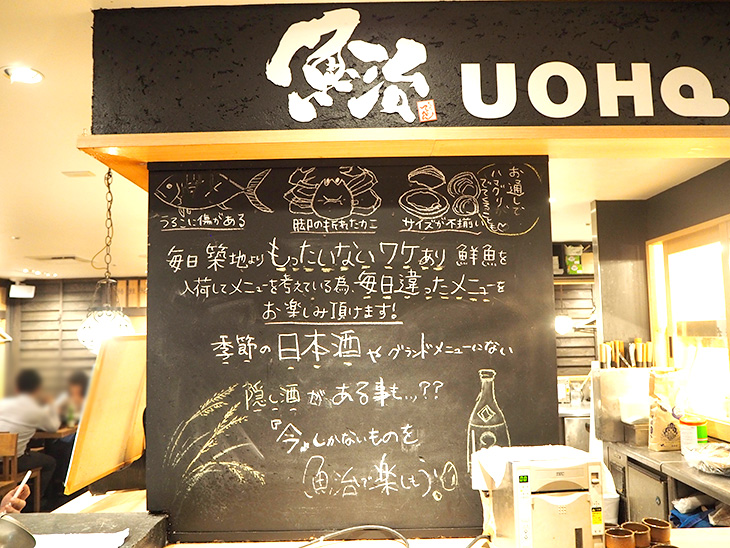 魚治 UOHA
うろこに傷がある
脚の折れたカニ
サイズが不揃い
お通しで
ハマグリが
でてきますよ〜
毎日築地よりもったいないワケあり鮮魚を
入荷してメニューを考えている為、毎日違ったメニューを
お楽しみ頂けます!
季節の日本酒やグランドメニューにない
隠し酒がある事も...??
『今』しかないものを
魚治で楽しもう